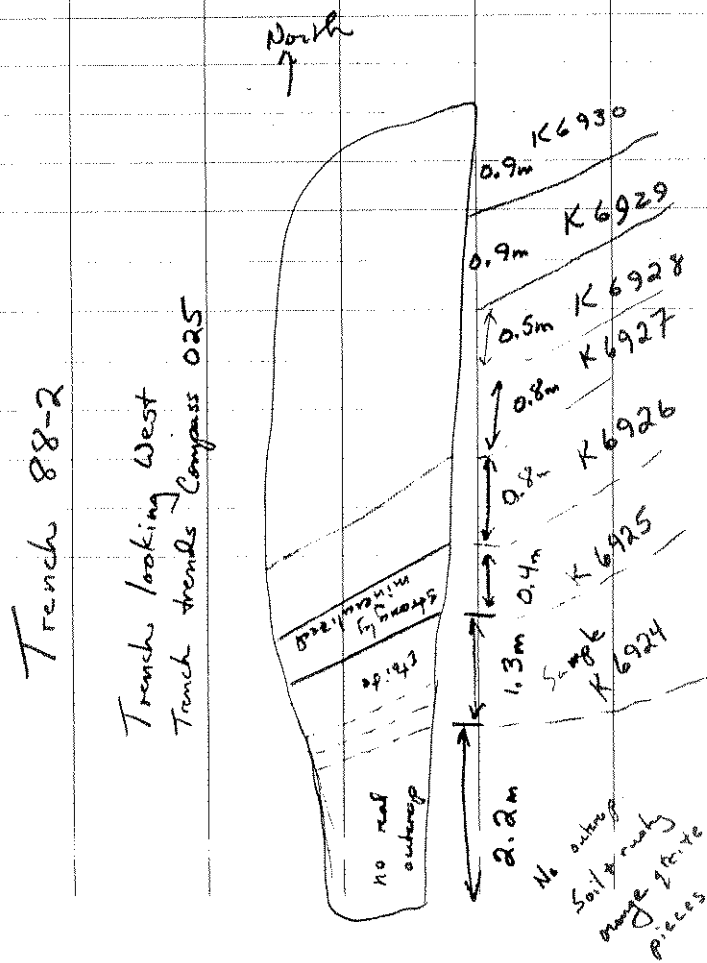 North
Trench 88-2
Trench looking West
Trench trends Compass 025
0.9m K6930
0.9m K6929
0.5m K6928
0.8m K6927
0.8m K6926
0.4m K6925
1.3m Sample K6924
2.2m No outcrop
Soil + rusty
orange qtzite
pieces
strongly
mineralized
no real
outcrop